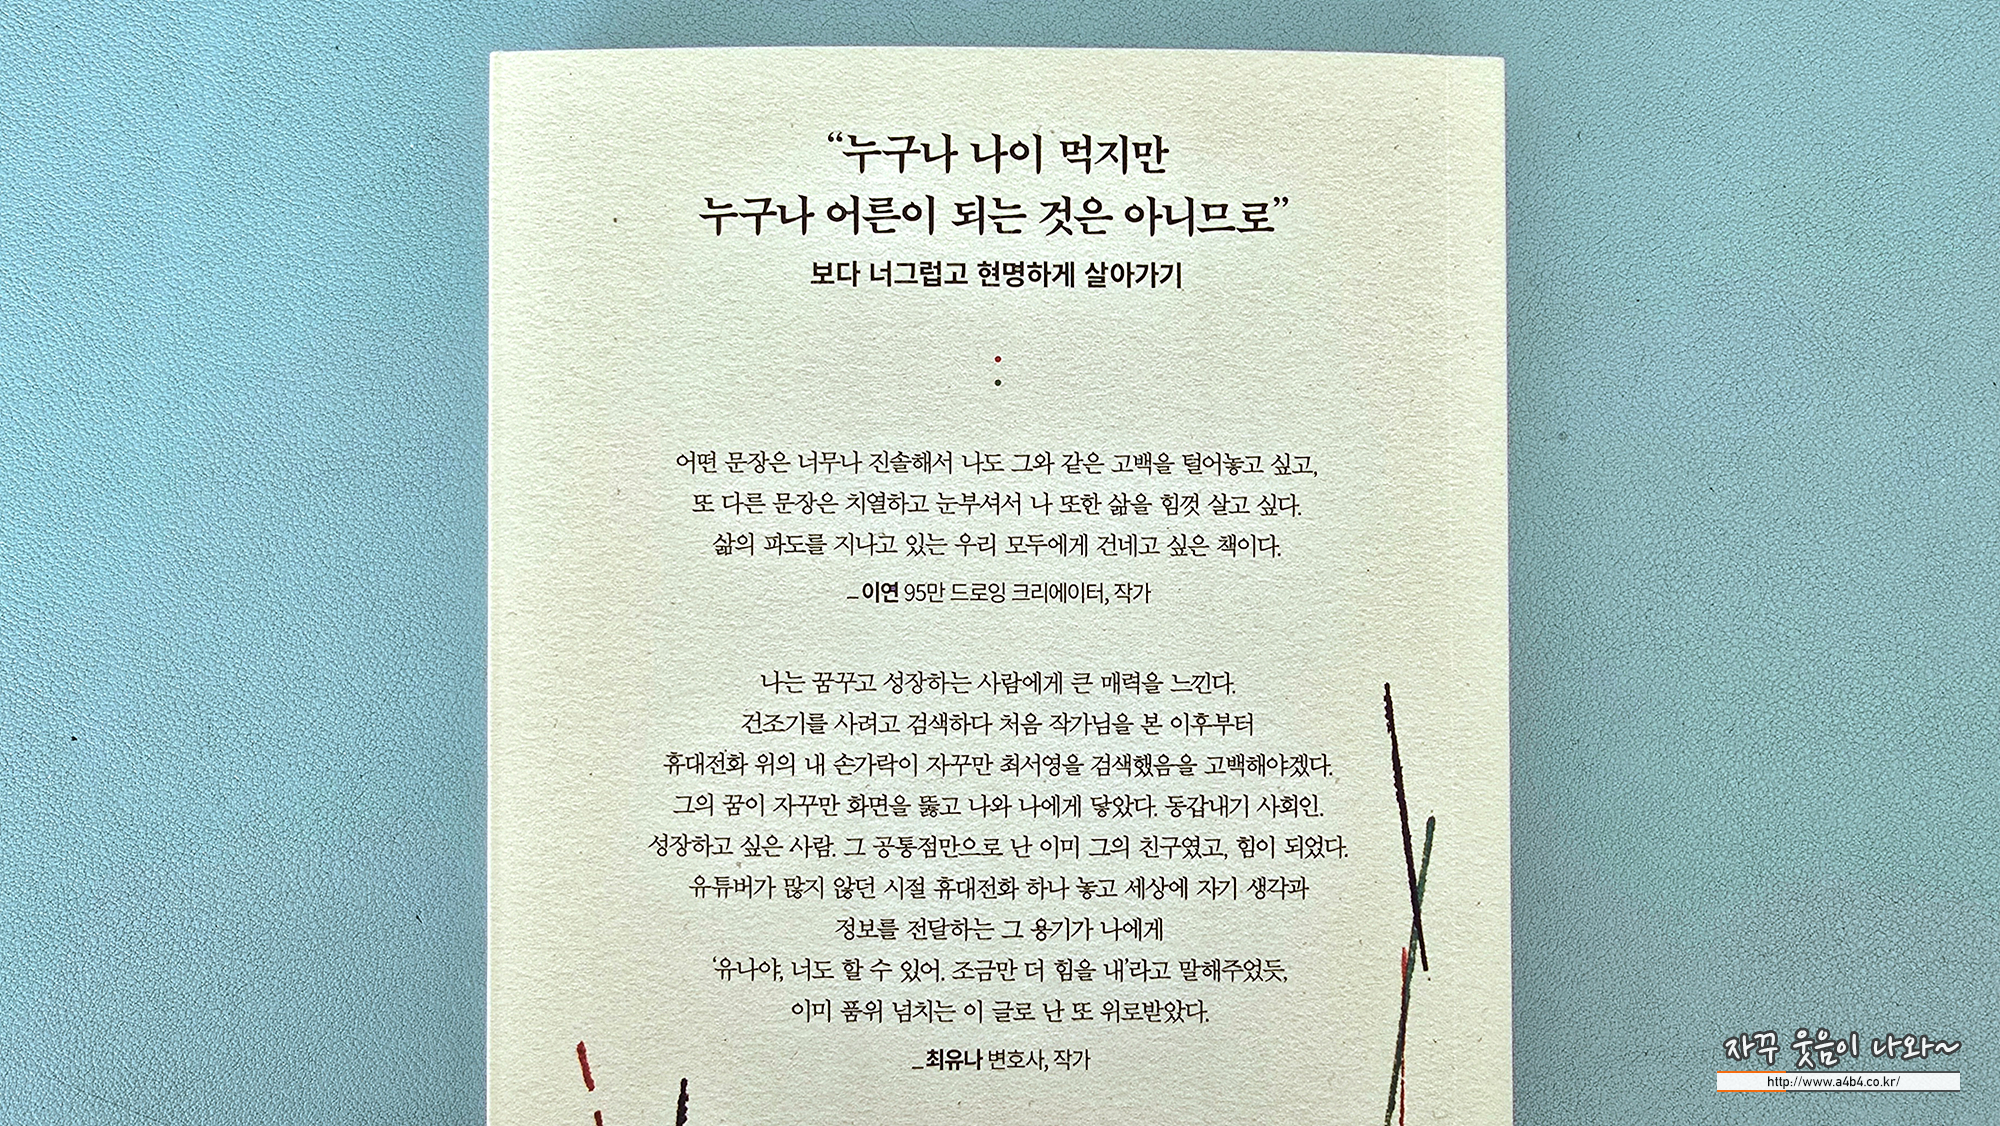 “누구나 나이 먹지만
누구나 어른이 되는 것은 아니므로”
보다 너그럽고 현명하게 살아가기
어떤 문장은 너무나 진솔해서 나도 그와 같은 고백을 털어놓고 싶고,
또 다른 문장은 치열하고 눈부셔서 나 또한 삶을 힘껏 살고 싶다.
삶의 파도를 지나고 있는 우리 모두에게 건네고 싶은 책이다.
_이연 95만 드로잉 크리에이터, 작가
나는 꿈꾸고 성장하는 사람에게 큰 매력을 느낀다.
건조기를 사려고 검색하다 처음 작가님을 본 이후부터
휴대전화 위의 내 손가락이 자꾸만 최서영을 검색했음을 고백해야겠다.
그의 꿈이 자꾸만 화면을 뚫고 나와 나에게 닿았다. 동갑내기 사회인.
성장하고 싶은 사람. 그 공통점만으로 난 이미 그의 친구였고, 힘이 되었다.
유튜버가 많지 않던 시절 휴대전화 하나 놓고 세상에 자기 생각과
정보를 전달하는 그 용기가 나에게
‘유나야, 너도 할 수 있어. 조금만 더 힘을 내’라고 말해주었듯,
이미 품위 넘치는 이 글로 난 또 위로받았다.
_최유나 변호사, 작가
자꾸 웃음이 나와~
http://www.a4b4.co.kr/